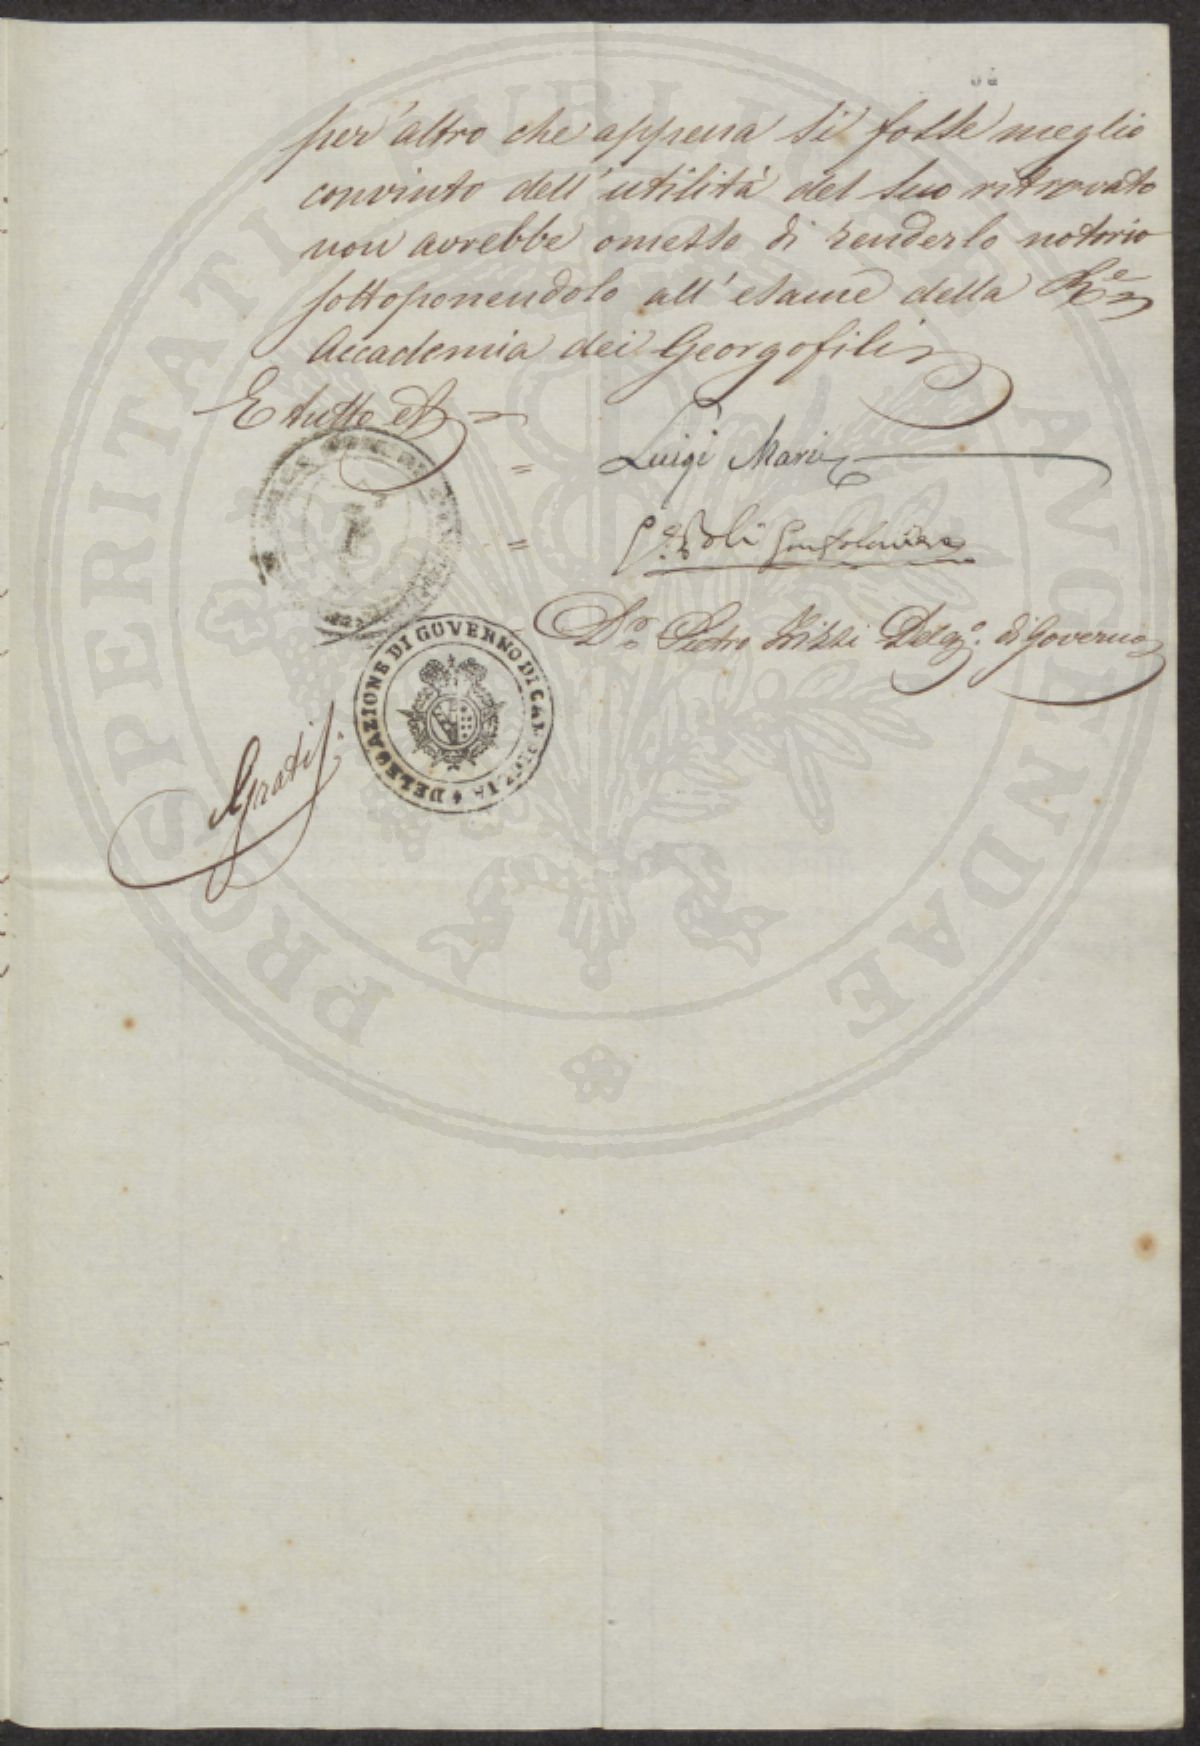 per altro che appena si fosse meglio
convinto dell'utilità del suo ritrovato
non avrebbe omesso di renderlo notorio
sottoponendolo all'esame della R.e
Accademia dei Georgofili
E tutto et
= Luigi Marin
= Poli Gonfaloniere
Dr Pietro Delego. di Governo
DELEGAZIONE DI GOVERNO DI
Gratis.
PROSPERITATI PUBLICAE AUGENDAE